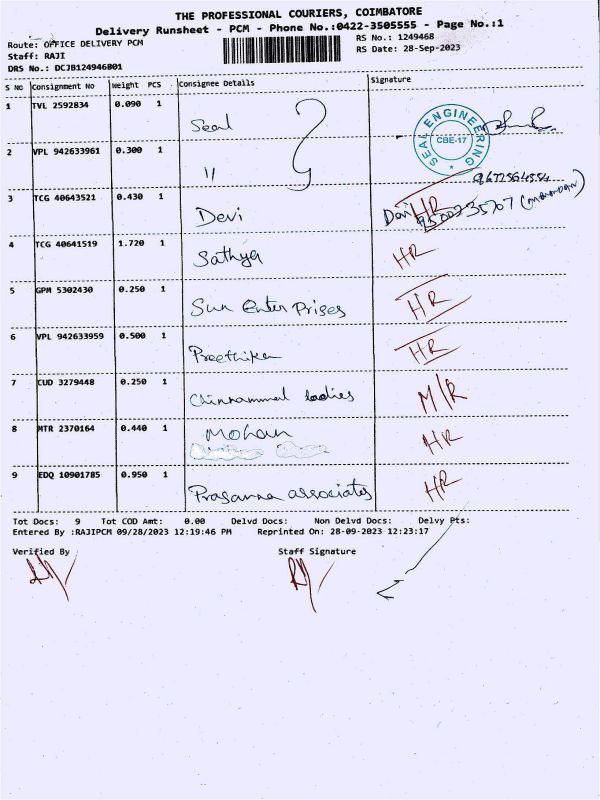 THE PROFESSIONAL COURIERS, COIMBATORE
Delivery Runsheet - PCM - Phone No.:0422-3505555 - Page No.:1
Route: OFFICE DELIVERY PCM
RS No.: 1249468
Staff: RAJI
RS Date: 28-Sep-2023
DRS No.: DCJB124946801
S No Consignment No Weight PCS Consignee Details Signature
1 TVL 2592834 0.090 1 Seal
SEAL ENGINEERING CBE-17
2 VPL 942633961 0.300 1 "
3 TCG 40643521 0.430 1 Devi Devi HR
4 TCG 40641519 1.720 1 Sathya HR
5 GPM 5302430 0.250 1 Sun Enter Prises HR
6 VPL 942633959 0.500 1 Preethika HR
7 CUD 3279448 0.250 1 Chinnammal ladies M/R
8 MTR 2370164 0.440 1 Mohan HR
9 EDQ 10901785 0.950 1 Prasanna associates HR
Tot Docs: 9 Tot COD Amt: 0.00 Delvd Docs: Non Delvd Docs: Delvy Pts:
Entered By :RAJIPCM 09/28/2023 12:19:46 PM Reprinted On: 28-09-2023 12:23:17
Verified By Staff Signature